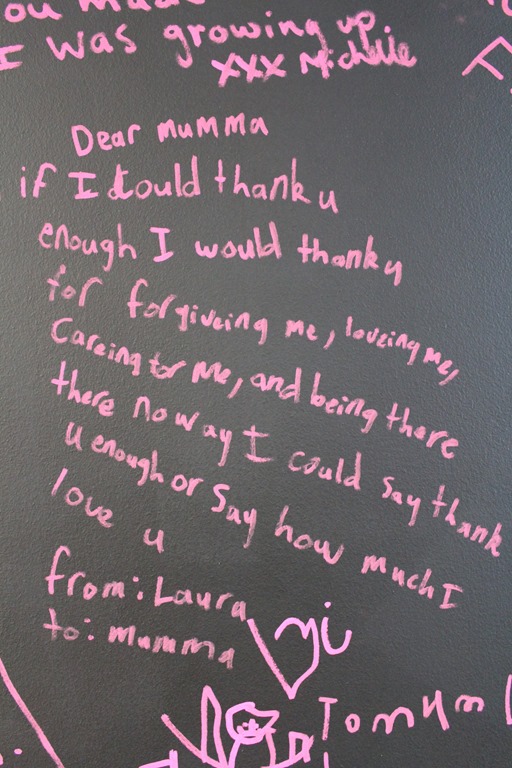 I was growing up
xxx Michelle
Dear mumma
if I could thank u
enough I would thank u
for forgiveing me, loveing me,
Careing for me, and being there
there no way I could say thank
u enough or say how much I
love u
from: Laura
to: mumma
To mum